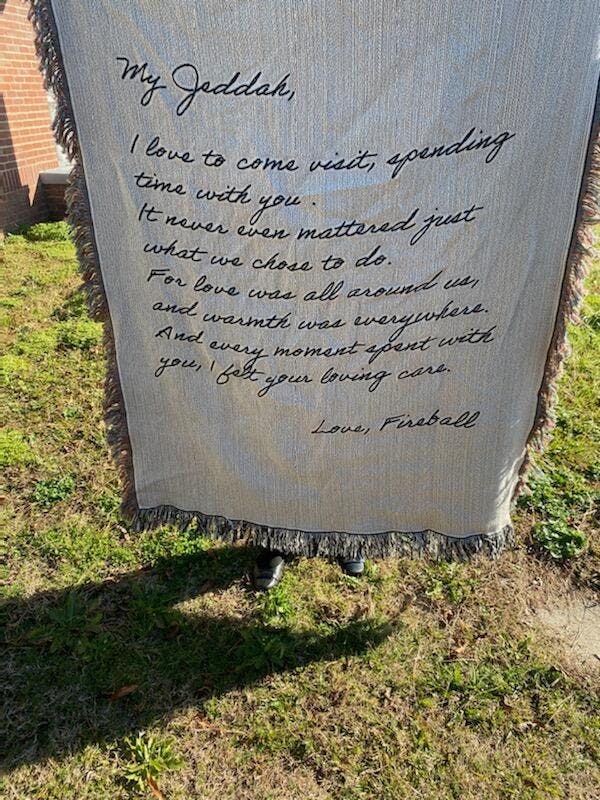 My Jeddah,
I love to come visit, spending
time with you.
It never even mattered just
what we chose to do.
For love was all around us,
and warmth was everywhere.
And every moment spent with
you, I felt your loving care.
Love, Fireball